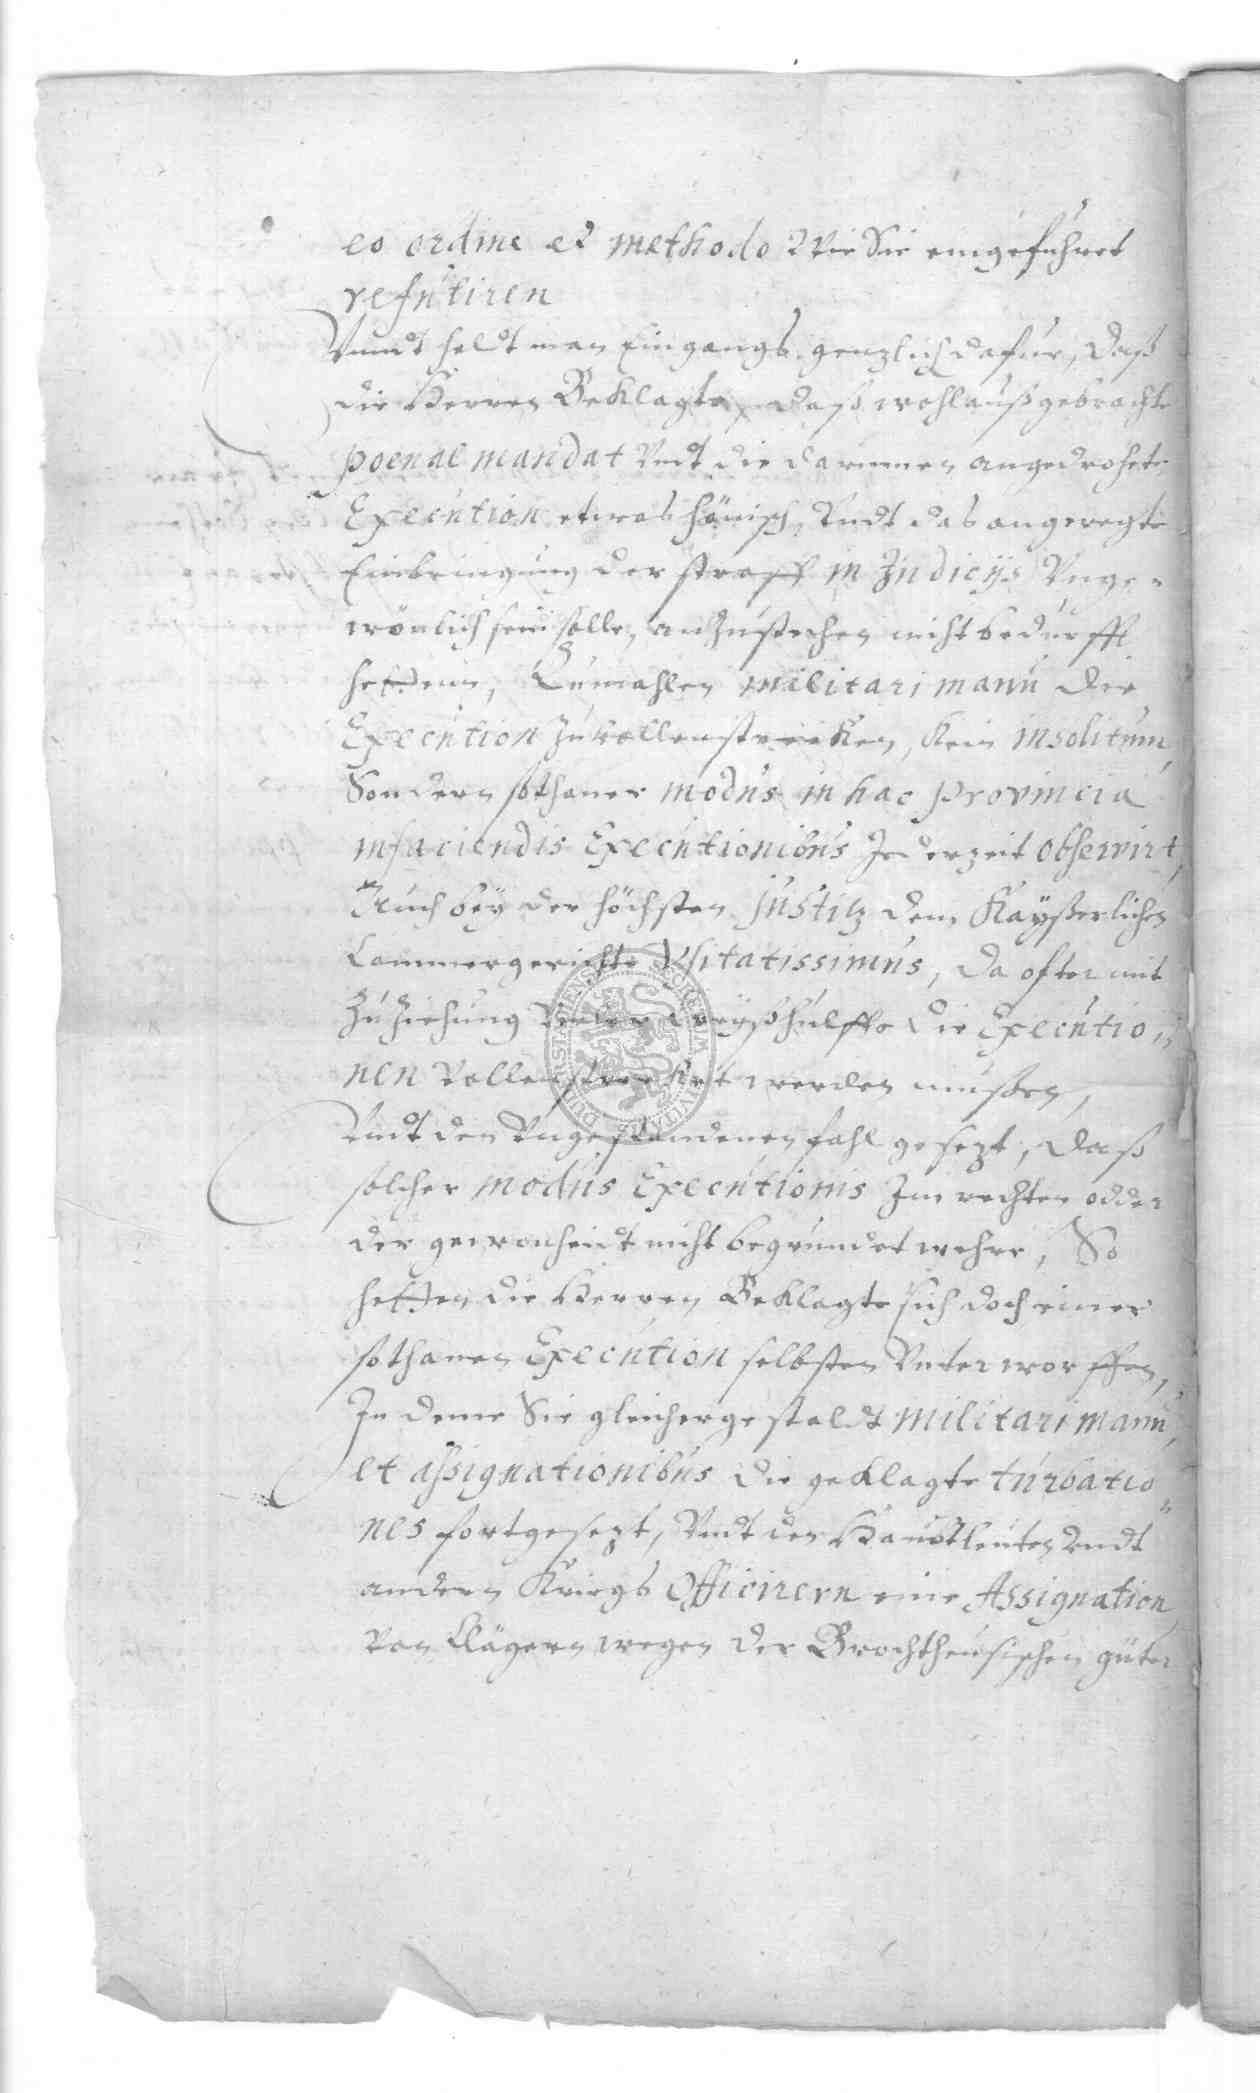 eo ordine et methodo Wie Sie eingeführet
refutiren
Vnndt heldt man Eingangs genzlich dafür, daß
die Herren Beklagte, daß wohlaußgebrachte
poenal mandat Vndt die darinnen angedrohete
Execution etwas hönisch, Vndt das angeregte
Einbringung der straff in Judicijs Vnge-
wönlich sein solle, anzustechen nicht bedürfft
hettenn, Zumahlen militari manu die
Execution zu vollenstrecken, Kein insolitum,
Sondern sothaner modus in hac Provincia
in faciendis Executionibus Jederzeit observirt,
Auch bey der höchsten Justitz dem Kayßerlichen
Cammergerichte Vsitatissimus, da ofter mit
Zuziehung Vieler Creyßhülffe die Executio-
nen Vollenstrecket werden müßen,
Vndt den Vngestandenen fahl gesezt, daß
solcher modus Executionis Im rechten odder
der gewonheidt nicht begründet wehre, So
hetten die Herren Beklagte sich doch einer
sothanen Execution selbsten Vnterworffen,
In deme Sie gleichergestaldt militari manu,
et assignationibus die geklagte turbatio-
nes fortgesezt, Vndt den Haubtleuten Vndt
andern Kriegs Officirern eine Assignation
Von Klägern wegen der Brochtheusischen güter
SECRETUM CIVITATIS